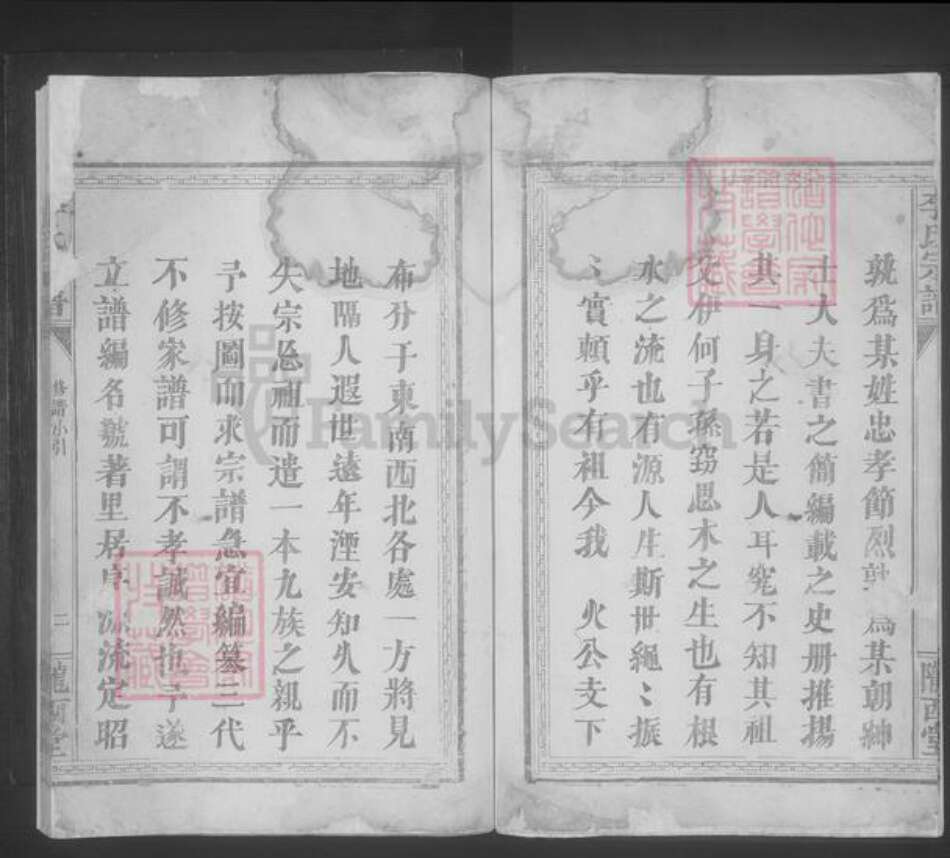 李氏宗譜
孰爲某姓忠孝節烈孰爲某朝紳
士大夫書之簡編載之史册推揚
其一身之若是人耳究不知其祖
父伊何子孫窈思木之生也有根
水之流也有源人生斯世繩〻振
〻實賴乎有祖今我 火公支下
隴西堂
布分于東南西北各處一方將見
地隔人遐世遠年湮安知久而不
失宗忘祖而遺一本九族之親乎
予按圖而求宗譜急宜編纂三代
不修家譜可謂不孝誠然也予遂
立譜編名號著里居序源流定昭
修譜小引
二
隴西堂
FamilySearch